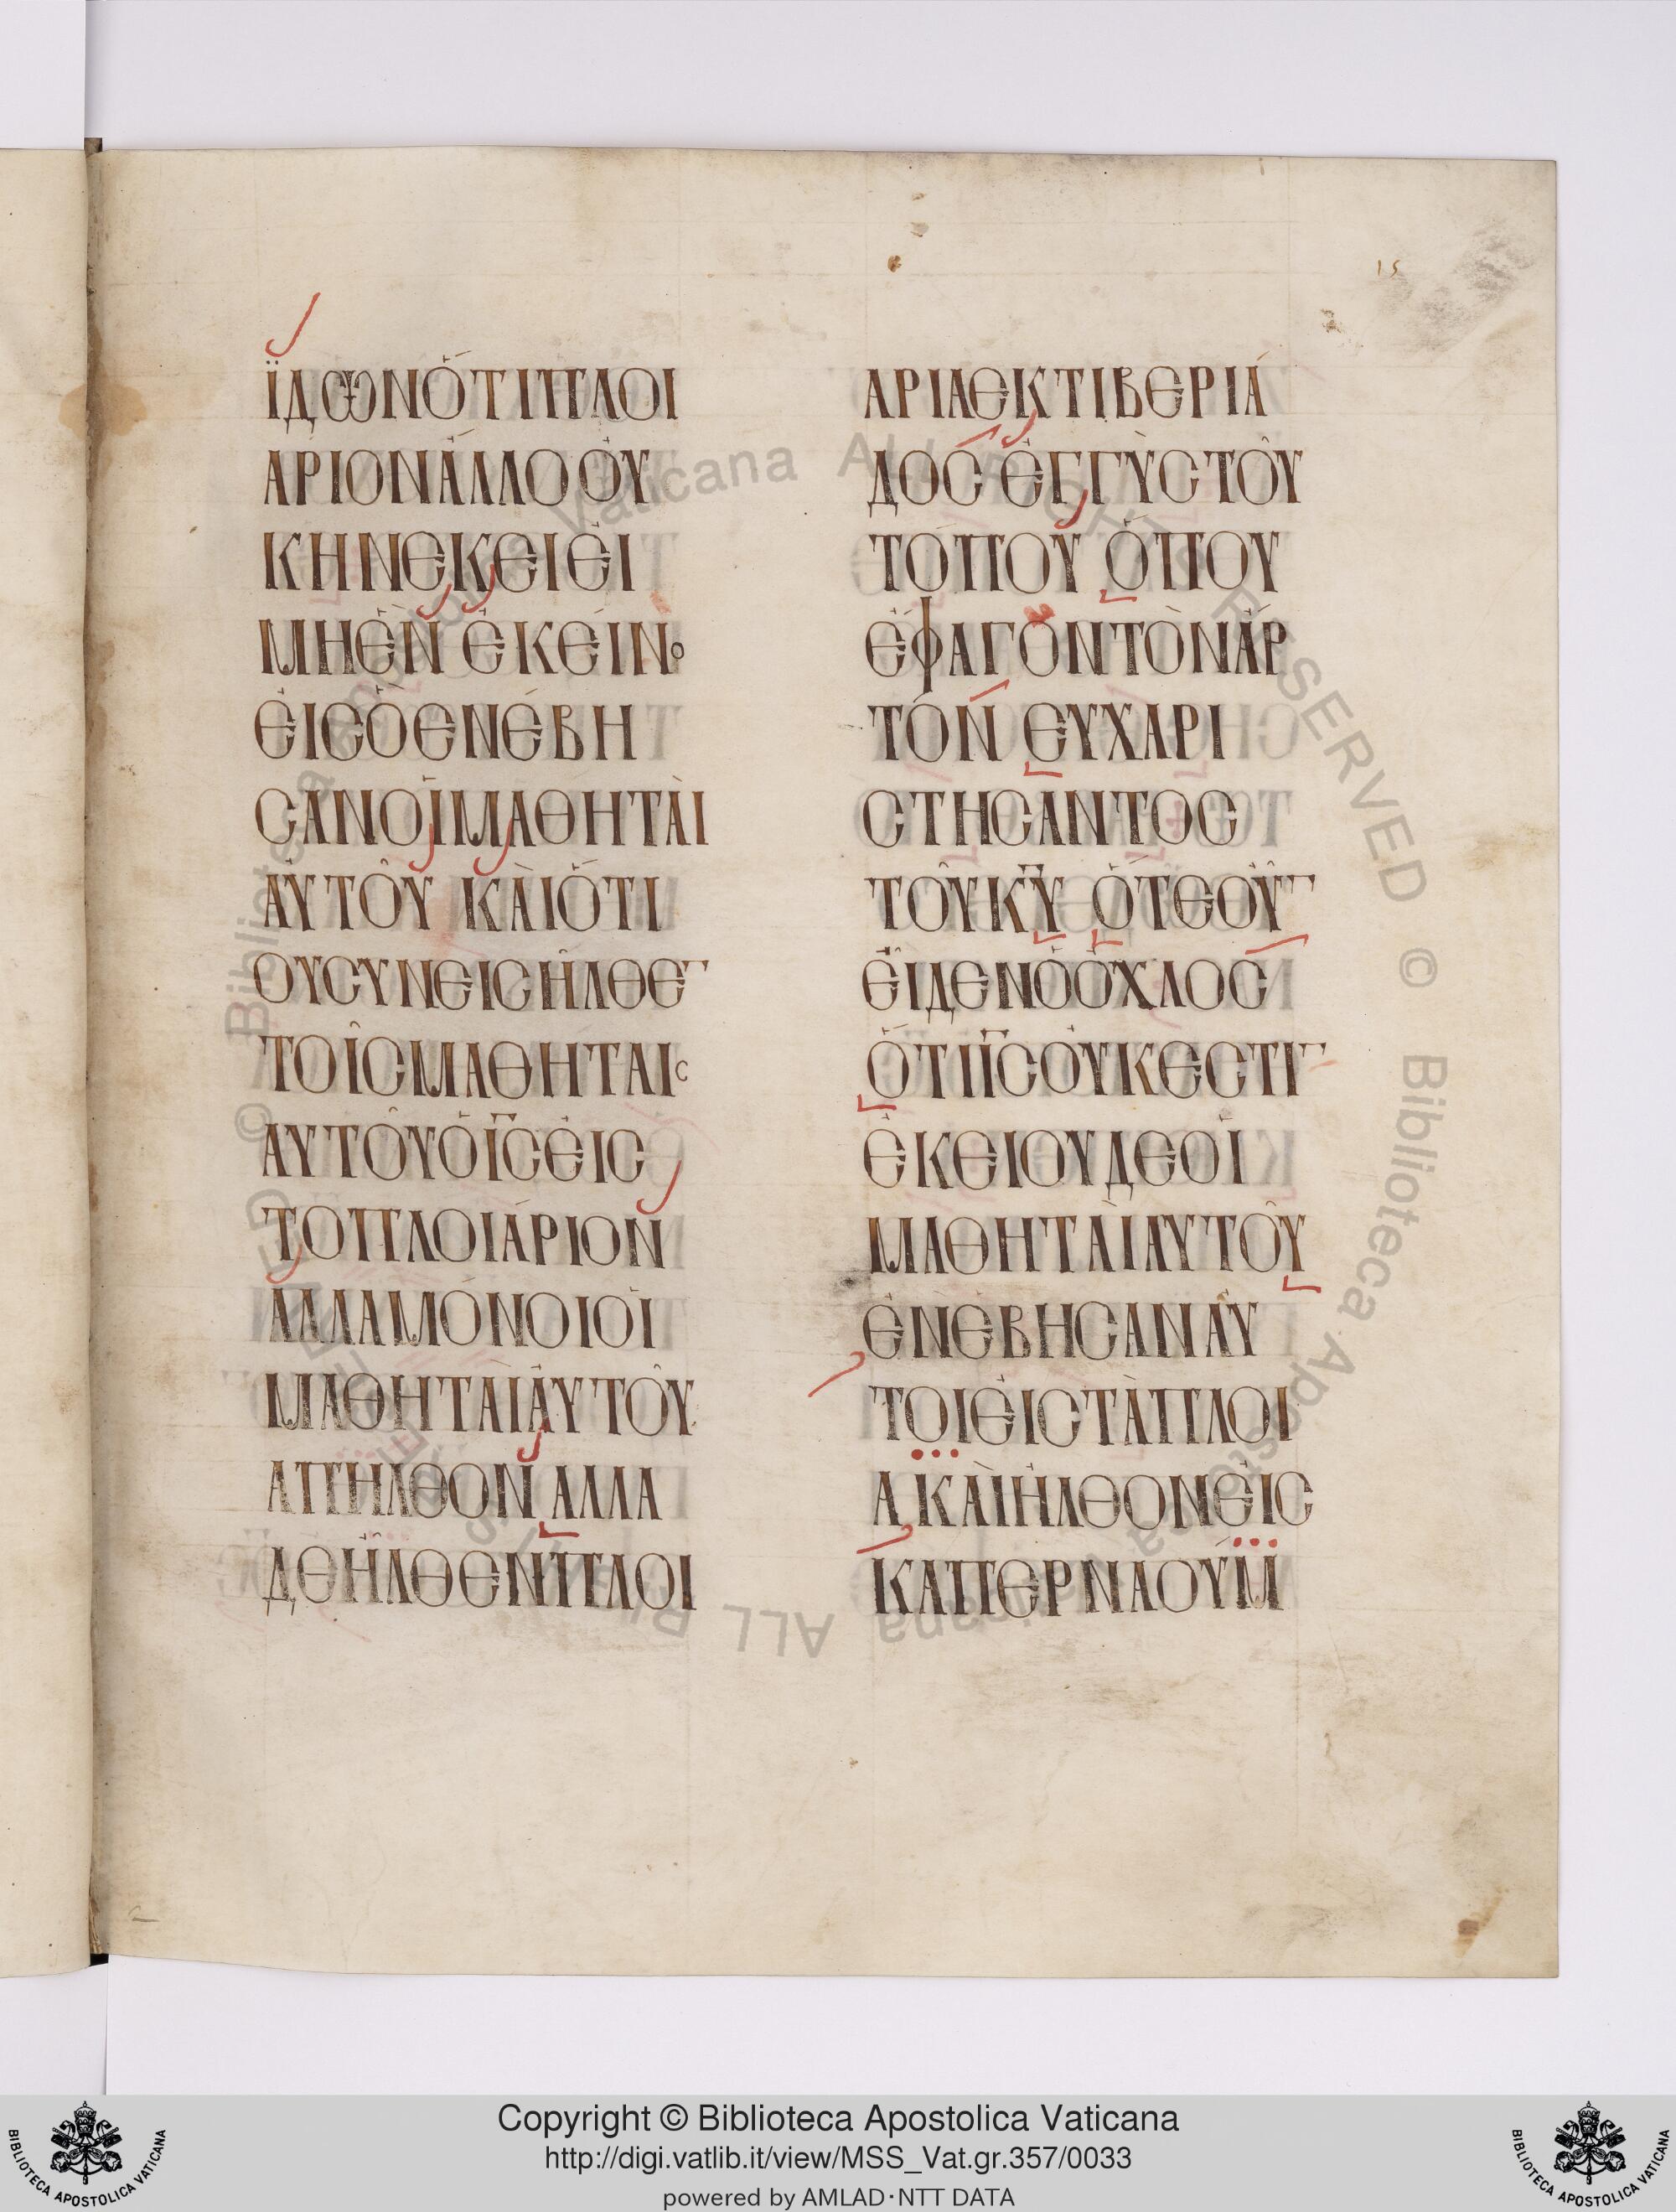 15
ΪΔΩΝὍΤΙΠΛΟΙ
ΑΡΙΟΝἌΛΛΟΟΥ̓
ΚΗΝΕΚΕΙΕἸ
ΜΗἚΝ ἘΚΕΊΝΟ
ἘΙCὋΕΝΈΒΗ
CΑΝΟἹΜΑΘΗΤᾺΙ
ἈΥΤΟΥ͂ ΚᾺΙὍΤΙ
ΟΥCΥΝΕΙCΗ͂ΛΘΕ¯
ΤΟΙ͂CΜΑΘΗΤΑΙC
ΑΥΤΟΥ͂ὉΙ̅C̅ἘΙC
ΤΟΠΛΟΙΆΡΙΟΝ
ἈΛΛΑΜΌΝΟΙΟἹ
ΜΑΘΗΤΑῚἈΥΤΟΥ͂
ΑΠΗΛΘΟΝ ΑΛΛΑ
ΔΕἮΛΘΕΝΠΛΟΙ
ΑΡΙΑΕΚΤΙΒΕΡΙΆ
ΔΟC ἘΓΓῪCΤΟΥ͂
ΤΌΠΟΥ ὍΠΟΥ
ἜΦΑΓΟΝΤῸΝἌΡ
ΤΟΝ ΕΥΧΑΡΙ
CΤΗCΑΝΤΟC
ΤΟΥ͂Κ̅Υ̅ ὍΤΕΟΥ̓͂¯
ΕἾΔΕΝὉὌΧΛΟC
ὍΤΙΙ̅C̅ΟΥ̓ΚΕCΤΙ¯
ἘΚΕΙΟΥΔΕΟἹ
ΜΑΘΗΤᾺΙΑΥΤΟΥ͂
ἘΝΈΒΗCΑΝΑΥ̓
ΤΟΙἘΙCΤᾺΠΛΟΙ
Α ΚΑῚἩΛΘΟΝἘΙC
ΚΑΠΕΡΝΑΟΎΜ
Copyright © Biblioteca Apostolica Vaticana
http://digi.vatlib.it/view/MSS_Vat.gr.357/0033
powered by AMLAD·NTT DATA
BIBLIOTECA APOSTOLICA VATICANA
BIBLIOTECA APOSTOLICA VATICANA